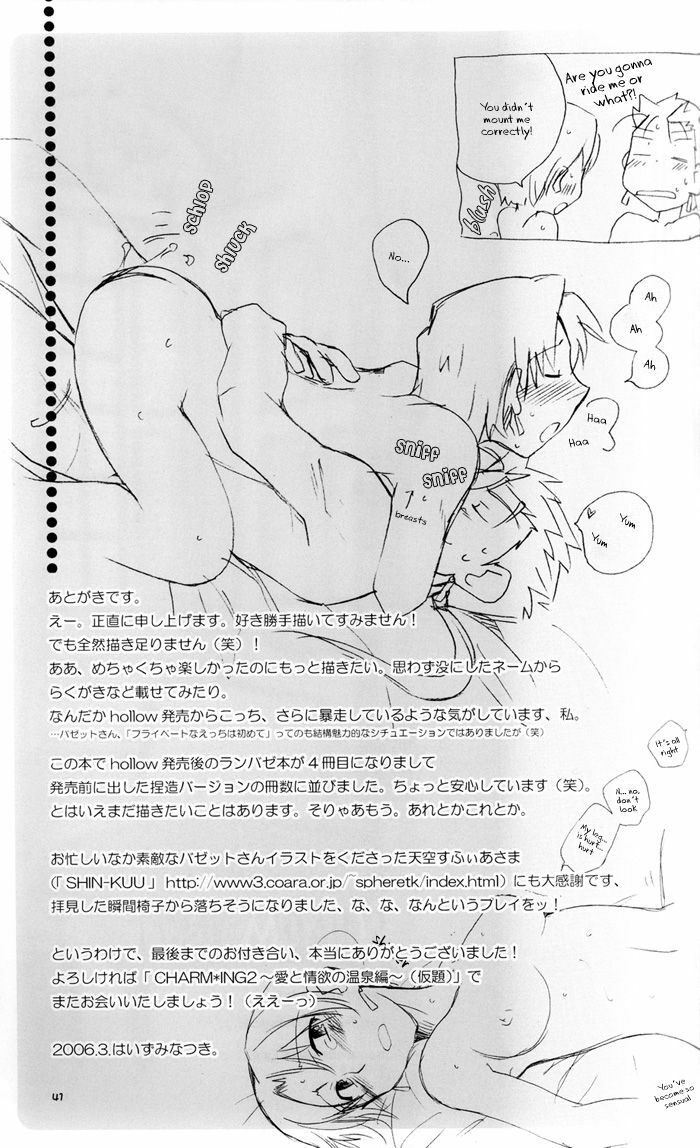 Are you gonna
ride me or
what?!
You didn't
mount me
correctly!
blush
schlop
shluck
No...
Ah
Ah
Ah
Haa
Haa
sniff
sniff
breasts
Yum
Yum
あとがきです。
えー。正直に申し上げます。好き勝手描いてすみません!
でも全然描き足りません(笑)!
ああ、めちゃくちゃ楽しかったのにもっと描きたい。思わず没にしたネームから
らくがきなど載せてみたり。
なんだか hollow 発売からこっち、さらに暴走しているような気がしています、私。
…バゼットさん、「プライベートなえっちは初めて」ってのも結構魅力的なシチュエーションではありましたが(笑)
この本で hollow 発売後のランバゼ本が4冊目になりまして
発売前に出した捏造バージョンの冊数に並びました。ちょっと安心しています(笑)。
とはいえまだ描きたいことはあります。そりゃあもう。あれとかこれとか。
お忙しいなか素敵なバゼットさんイラストをくださった天空すふぃあさま
(「SHIN-KUU」 http://www3.coara.or.jp/~spheretk/index.html)にも大感謝です、
拝見した瞬間椅子から落ちそうになりました、な、な、なんというプレイをッ!
というわけで、最後までのお付き合い、本当にありがとうございました!
よろしければ「CHARM*ING2〜愛と情欲の温泉編〜(仮題)」で
またお会いいたしましょう!(ええーっ)
2006.3.はいずみなつき。
It's all
right
N... no,
don't
look
My leg...
is hurt...
hurt
You've
become so
sensual
47